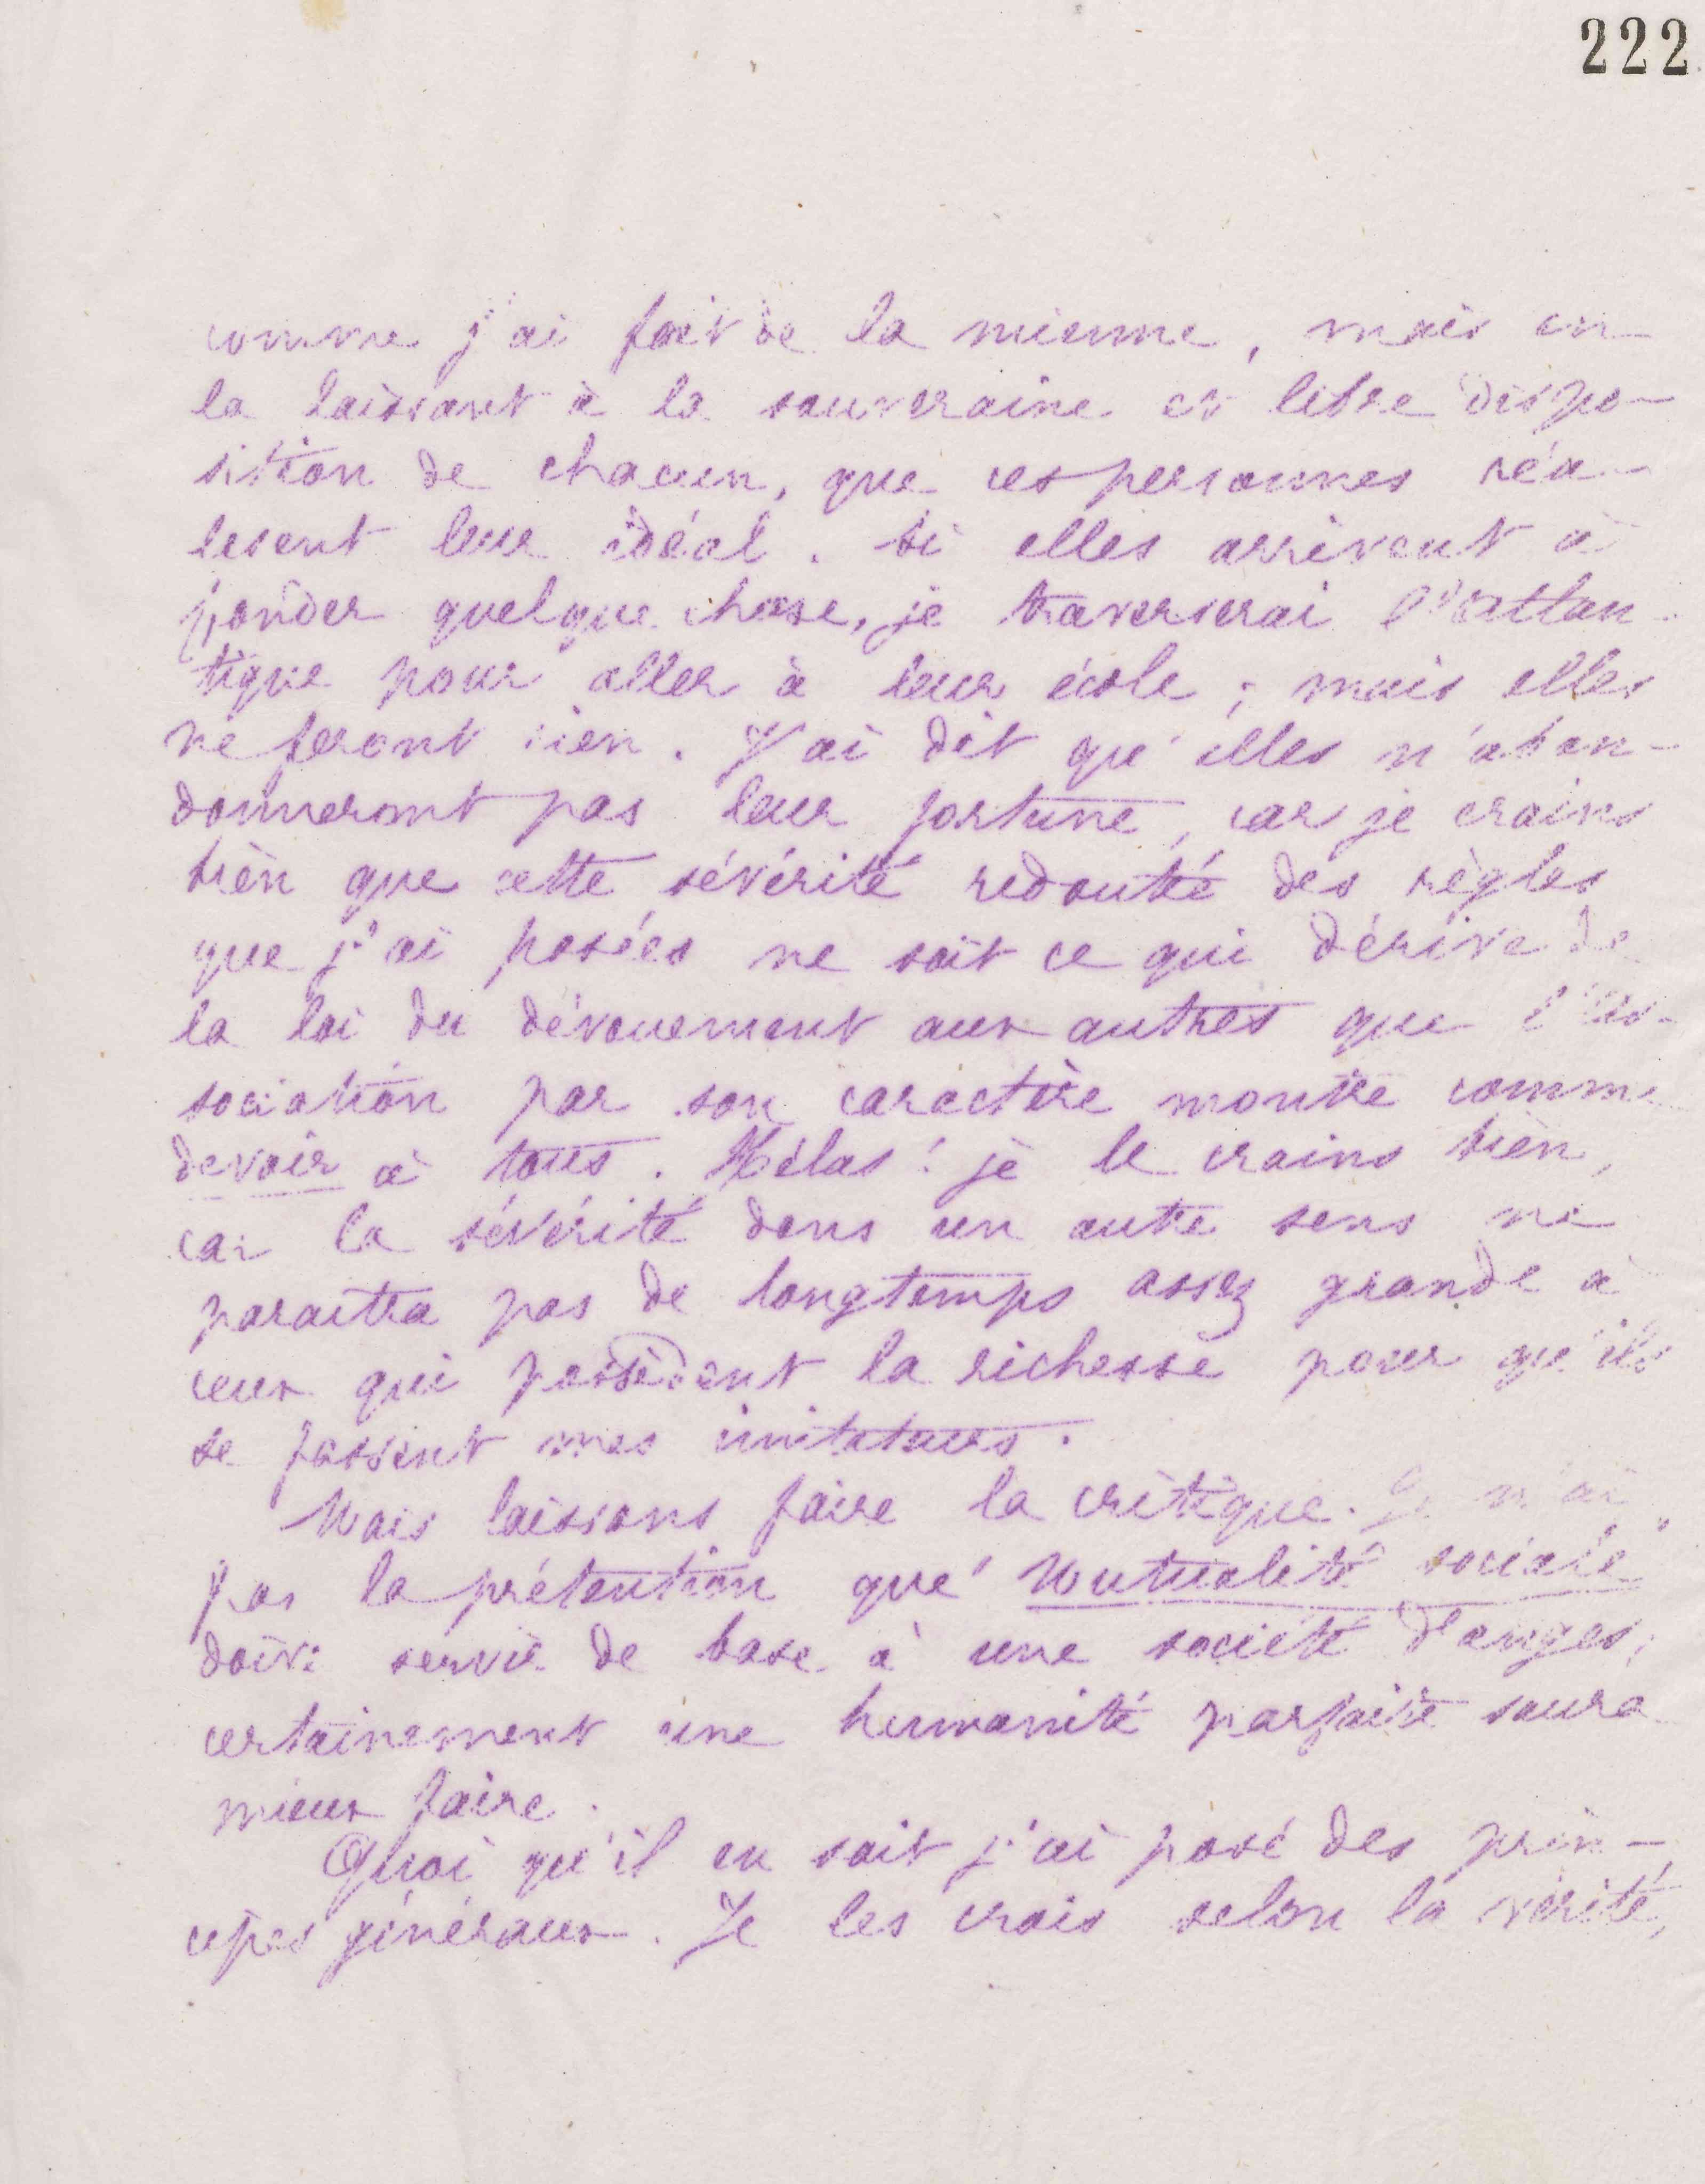 222
comme j'ai fait de la mienne, mais en
la laissant à la souveraine et libre dispo-
sition de chacun, que ces personnes réa-
lisent leur idéal. Si elles arrivent à
fonder quelque chose, je traverserai l'Atlan-
tique pour aller à leur école ; mais elles
ne feront rien. J'ai dit qu'elles n'aban-
donneront pas leur fortune, car je crains
bien que cette sévérité redoutée des règles
que j'ai posées ne soit ce qui dérive de
la loi du dévouement aux autres que l'as-
sociation par son caractère montre comme
devoir à tous. Hélas ! je le crains bien,
car la sévérité dans un autre sens ne
paraitra pas de longtemps assez grande à
ceux qui possèdent la richesse pour qu'ils
se fassent mes imitateurs.
Mais laissons faire la critique. Je n'ai
pas la prétention que "Mutualité sociale"
doive servir de base à une société d'anges,
certainement une humanité parfaite saura
mieux faire.
Quoi qu'il en soit j'ai posé des prin-
cipes généraux. Je les crois selon la vérité,